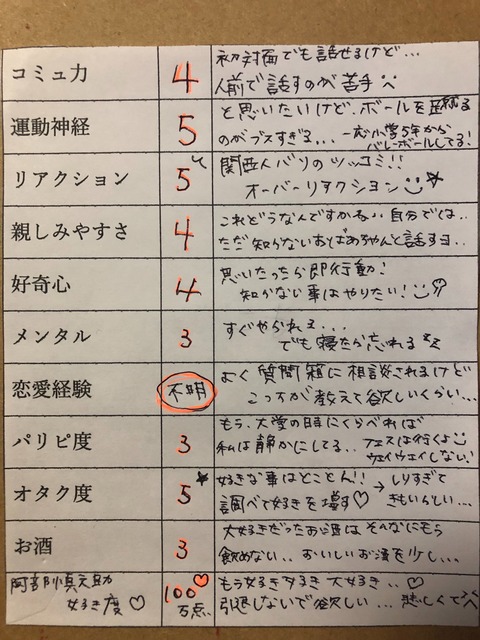 コミュ力
4
初対面でも話せるけど…
人前で話すのが苦手
運動神経
5
と思いたいけど、ボールを蹴る
のがブスすぎる… 一応小学5年から
バレーボールしてる!
リアクション
5
関西人バリのツッコミ!!
オーバーリアクション
親しみやすさ
4
これどうなんですかねぇ、自分では..
ただ知らないおばあちゃんと話すヨ..
好奇心
4
思いたったら即行動!
知らない事はやりたい!
メンタル
3
すぐやられる...
でも寝たら忘れる
恋愛経験
不明
よく質問箱に相談されるけど
こっちが教えて欲しいくらい…
パリピ度
3
もう、大学の時にくらべれば
私は静かにしてる.. フェスは行くよ
ウェイウェイしない!
オタク度
5
好きな事はとことん!!
調べて好きを増す♡
→しりすぎて
きもいらしい...
お酒
3
大好きだったお酒はそんなにもう
飲めない.. おいしいお酒を少し...
阿部慎之助
好き度♡
100
万点
もう好き好き大好き..♡
引退しないで欲しい... 悲しくて